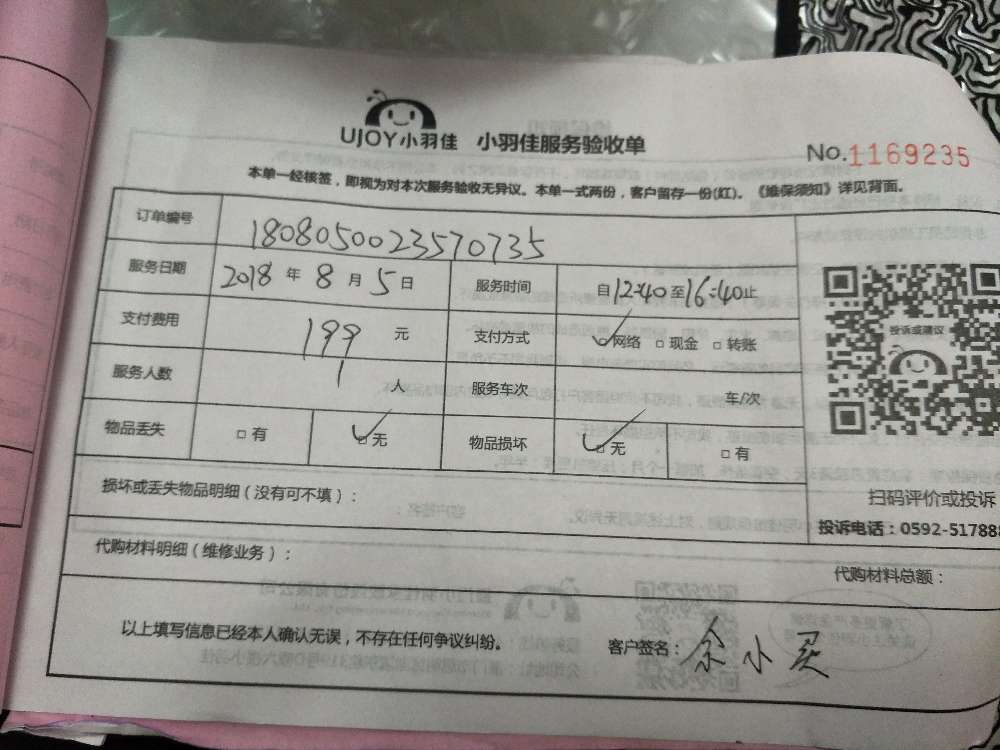 UJOY小羽佳 小羽佳服务验收单
No.1169235
本单一经核签，即视为对本次服务验收无异议。本单一式两份，客户留存一份(红)。《维保须知》详见背面。
订单编号 1808050023570735
服务日期 2018 年 8 月 5 日 服务时间 自12:40至16:40止
支付费用 199 元 支付方式 网络 □ 现金 □ 转账
投诉或建议
服务人数 1 人 服务车次 车/次
物品丢失 □ 有 □ 无 物品损坏 □ 无 □ 有
损坏或丢失物品明细（没有可不填）：
扫码评价或投诉
投诉电话：0592-517888
代购材料明细（维修业务）：
代购材料总额：
以上填写信息已经本人确认无误，不存在任何争议纠纷。 客户签名：余小买